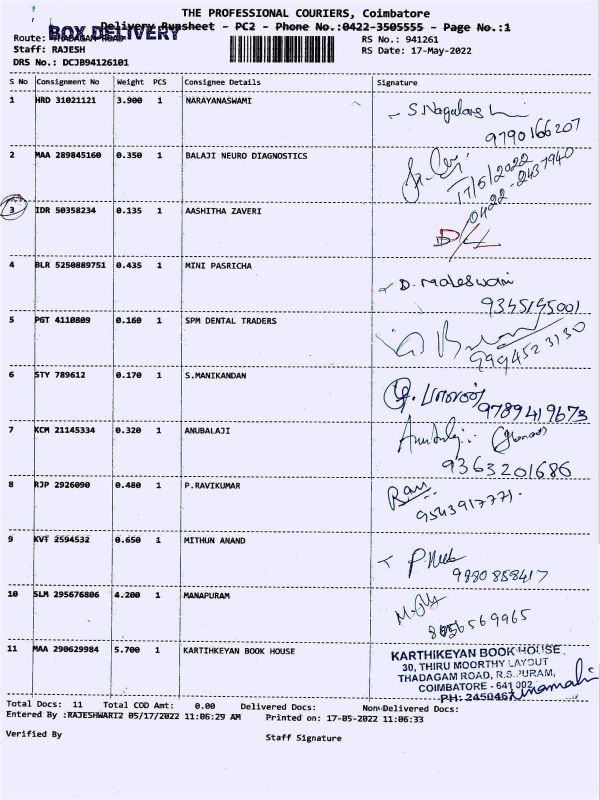 THE PROFESSIONAL COURIERS, Coimbatore
Delivery Runsheet - PC2 - Phone No.:0422-3505555 - Page No.:1
BOX DELIVERY
Route: THADAGAM ROAD RS No.: 941261
Staff: RAJESH RS Date: 17-May-2022
DRS No.: DCJB94126101
S No Consignment No Weight PCS Consignee Details Signature
1 HRD 31021121 3.900 1 NARAYANASWAMI
9790166207
2 MAA 289845160 0.350 1 BALAJI NEURO DIAGNOSTICS
17/5/2022
0422-2437940
3 IDR 50358234 0.135 1 AASHITHA ZAVERI
D/L
4 BLR 5250889751 0.435 1 MINI PASRICHA
9345145001
5 PGT 4110809 0.160 1 SPM DENTAL TRADERS
9994523130
6 STY 789612 0.170 1 S.MANIKANDAN
9789419673
7 KCM 21145334 0.320 1 ANUBALAJI
Anubalaji
9363201686
8 RJP 2926090 0.480 1 P.RAVIKUMAR
Ravi
9543917771.
9 KVT 2594532 0.650 1 MITHUN ANAND
9880858417
10 SLM 295676806 4.200 1 MANAPURAM
8056569965
11 MAA 290629984 5.700 1 KARTIHKEYAN BOOK HOUSE
KARTHIKEYAN BOOK HOUSE
30, THIRU MOORTHY LAYOUT
THADAGAM ROAD, R.S.PURAM,
COIMBATORE - 641 002
PH: 2450467
Total Docs: 11 Total COD Amt: 0.00 Delivered Docs: Non-Delivered Docs:
Entered By :RAJESHWARI2 05/17/2022 11:06:29 AM Printed on: 17-05-2022 11:06:33
Verified By Staff Signature